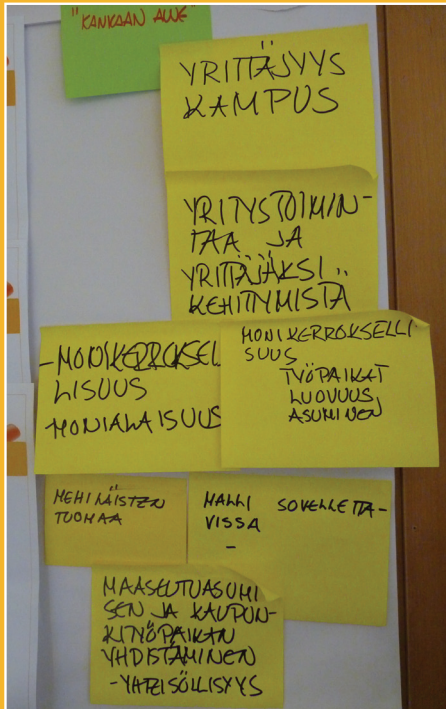 "KANKAAN ALUE"
YRITTÄJYYS
KAMPUS
YRITYSTOIMIN-
TAA JA
YRITTÄJÄKSI
KEHITYMISTÄ
-MONIKERROKSEL
LISUUS
MONIALAISUUS
MONIKERROKSELLI
SUUS
TYÖPAIKAT
LUOVUUS,
ASUMINEN
MEHILÄISTEN
TUOMAA
MALLI SOVELLETTA-
VISSA
-
MAASEUTUASUMI
SEN JA KAUPUN-
KITYÖPAIKAN
YHDISTÄMINEN
-YHTEISÖLLISYYS